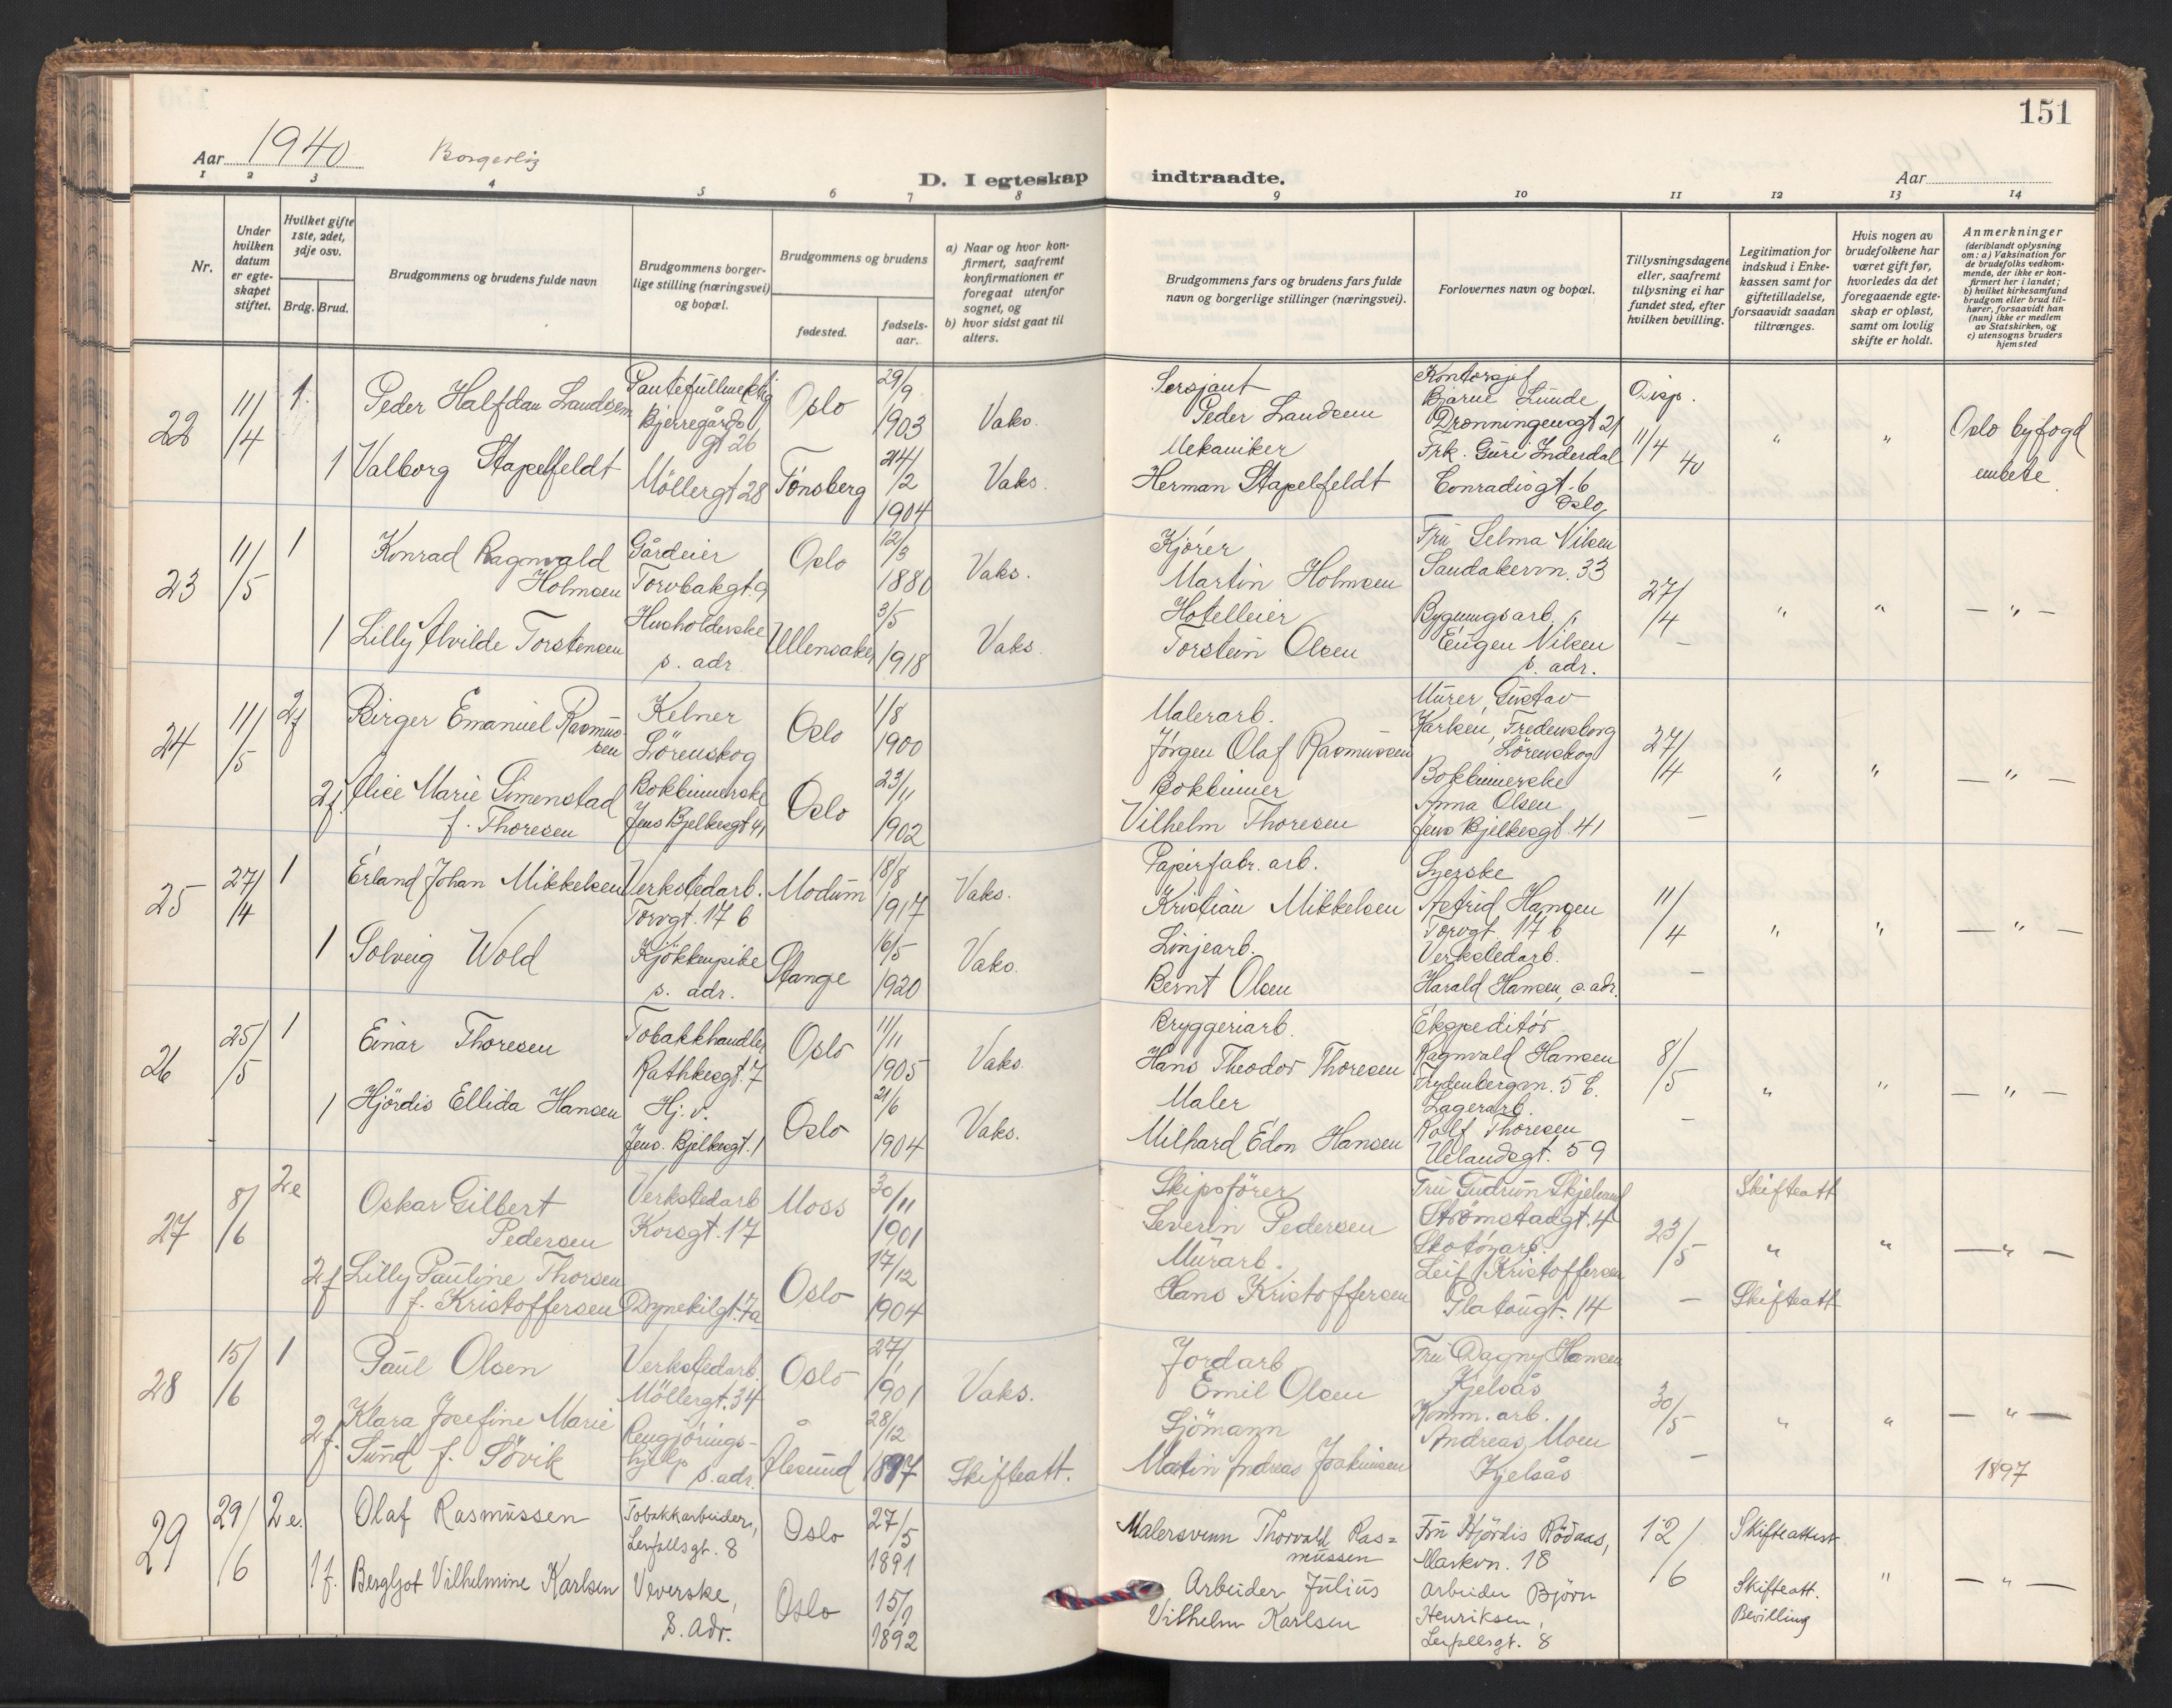 151
Aar 1940 Borgerlig
D. I egteskap indtraadte.
Aar
1 2 3 4 5 6 7 8 9 10 11 12 13 14
Nr.
Under
hvilken
datum
er egte-
skapet
stiftet.
Hvilket gifte
1ste, 2det,
3dje osv.
Brdg. Brud.
Brudgommens og brudens fulde navn
Brudgommens borger-
lige stilling (næringsvei)
og bopæl.
Brudgommens og brudens
fødested.
fødsels-
aar.
a) Naar og hvor kon-
firmert, saafremt
konfirmationen er
foregaat utenfor
sognet, og
b) hvor sidst gaat til
alters.
Brudgommens fars og brudens fars fulde
navn og borgerlige stillinger (næringsvei).
Forlovernes navn og bopæl.
Tillysningsdagene
eller, saafremt
tillysning ei har
fundet sted, efter
hvilken bevilling.
Legitimation for
indskud i Enke-
kassen samt for
giftetilladelse,
forsaavidt saadan
tiltrænges.
Hvis nogen av
brudefolkene har
været gift før,
hvorledes da det
foregaaende egte-
skap er opløst,
samt om lovlig
skifte er holdt.
Anmerkninger
(deriblandt oplysning
om: a) Vaksination for
de brudefolks vedkom-
mende, der ikke er kon-
firmert her i landet;
b) hvilket kirkesamfund
brudgom eller brud til-
hører, forsaavidt han
(hun) ikke er medlem
av Statskirken, og
c) utensogns bruders
hjemsted
22
11/4
1
Peder Halfdan Landsem
Pantefullmektig
Bjerregårds
gt 26
Oslo
29/9
1903
Vaks.
Sersjant
Peder Landsem
Kontorsjef
Bjarne Lunde
Dronningensgt 21
Disp.
11/4 40
"
"
Oslo byfogd
embete
1
Valborg Stapelfeldt
Möllergt 28
Tönsberg
24/2
1904
Vaks.
Mekaniker
Herman Stapelfeldt
Frk. Guri Inderdal
Conradisgt. 6
Oslo
23
11/5
1
Konrad Ragnvald
Holmsen
Gårdeier
Torvbakgt. 9
Oslo
12/3
1880
Vaks.
Kjörer
Martin Holmsen
Fru Selma Viken
Sandakervn. 33
27/4
"
"
— " —
1
Lilly Alvilde Torstensen
Husholderske
s. adr
Ullensaker
3/5
1918
Vaks.
Hotelleier
Torstein Olsen
Bygningsarb.
Eugen Viken
s. adr.
—
24
11/5
2f
Birger Emanuel Rasmus-
sen
Kelner
Lörenskog
Oslo
1/8
1900
Malerarb.
Jörgen Olaf Rasmussen
Murer Gustav
Karlsen, Fredensborg
Lörenskog
27/4
"
"
— " —
2f.
Alice Marie Simenstad
f. Thoresen
Bokbinnerske
Jens Bjelkesgt 41
Oslo
23/11
1902
Bokbinner
Vilhelm Thoresen
Bokbinnerske
Anna Olsen
Jens Bjelkesgt. 41
—
25
27/4
1
Erland Johan Mikkelsen
Verkstedarb.
Torvgt. 17 b
Modum
18/8
1917
Vaks.
Papirfabr. arb.
Kristian Mikkelsen
Syerske
Astrid Hansen
Torvgt. 17 b
11/4
"
"
— " —
1
Solveig Wold
Kjökkenpike
s. adr.
Stange
16/5
1920
Vaks.
Linjearb.
Bernt Olsen
Verkstedarb.
Harald Hansen, s. adr.
—
26
25/5
1
Einar Thoresen
Tobakkhandler
Rathkesgt. 7
Oslo
11/11
1905
Vaks.
Bryggeriarb.
Hans Theodor Thoresen
Ekspeditör
Ragnvald Hansen
Frydenbergvn. 5 b.
8/5
"
"
— " —
1
Hjördis Ellida Hansen
Hj. v.
Jens. Bjelkesgt. 1
Oslo
21/6
1904
Vaks.
Maler
Milhard Edon Hansen
Lagerarb.
Rolf Thoresen
Uelandsgt. 59
—
27
8/6
2e
Oskar Gilbert
Pedersen
Verkstedarb
Korsgt. 17
Moss
30/11
1901
Skipsförer
Severin Pedersen
Fru Gudrun
Strömstadgt. 4
23/5
Skifteatt
"
"
— " —
2f
Lilly Pauline Thorsen
f. Kristoffersen
Dynekilgt. 7a
Oslo
17/12
1904
Murarb.
Hans Kristoffersen
Skotöyarb.
Leif Kristoffersen
Platougt. 14
—
Skifteatt
28
15/6
1
Paul Olsen
Verkstedarb.
Möllergt. 34
Oslo
27/1
1901
Vaks.
Jordarb
Emil Olsen
Fru Dagny Hansen
Kjelsås
30/5
"
"
— " —
2f.
Klara Josefine Marie
Sund f. Sövik
Rengjörings-
hjelp s. adr.
Ålesund
28/12
1897
Skifteatt.
Sjömann
Martin Andreas Joakimsen
Komm. arb.
Andreas Moen
Kjelsås
—
1897
29
29/6
2e.
Olaf Rasmussen
Tobakkarbeider,
Leirfallsgt. 8
Oslo
27/5
1891
Malersvenn Thorvald Ras=
mussen
Fru Hjördis Rödaas,
Markvn. 18
12/6
Skifteattest
"
— " —
1f.
Bergljot Vilhelmine Karlsen
Veverske,
s. adr.
Oslo
15/1
1892
Arbeider Julius
Vilhelm Karlsen
Arbeider Björn
Henriksen,
Leirfallsgt. 8
Skifteatt.
Bevilling